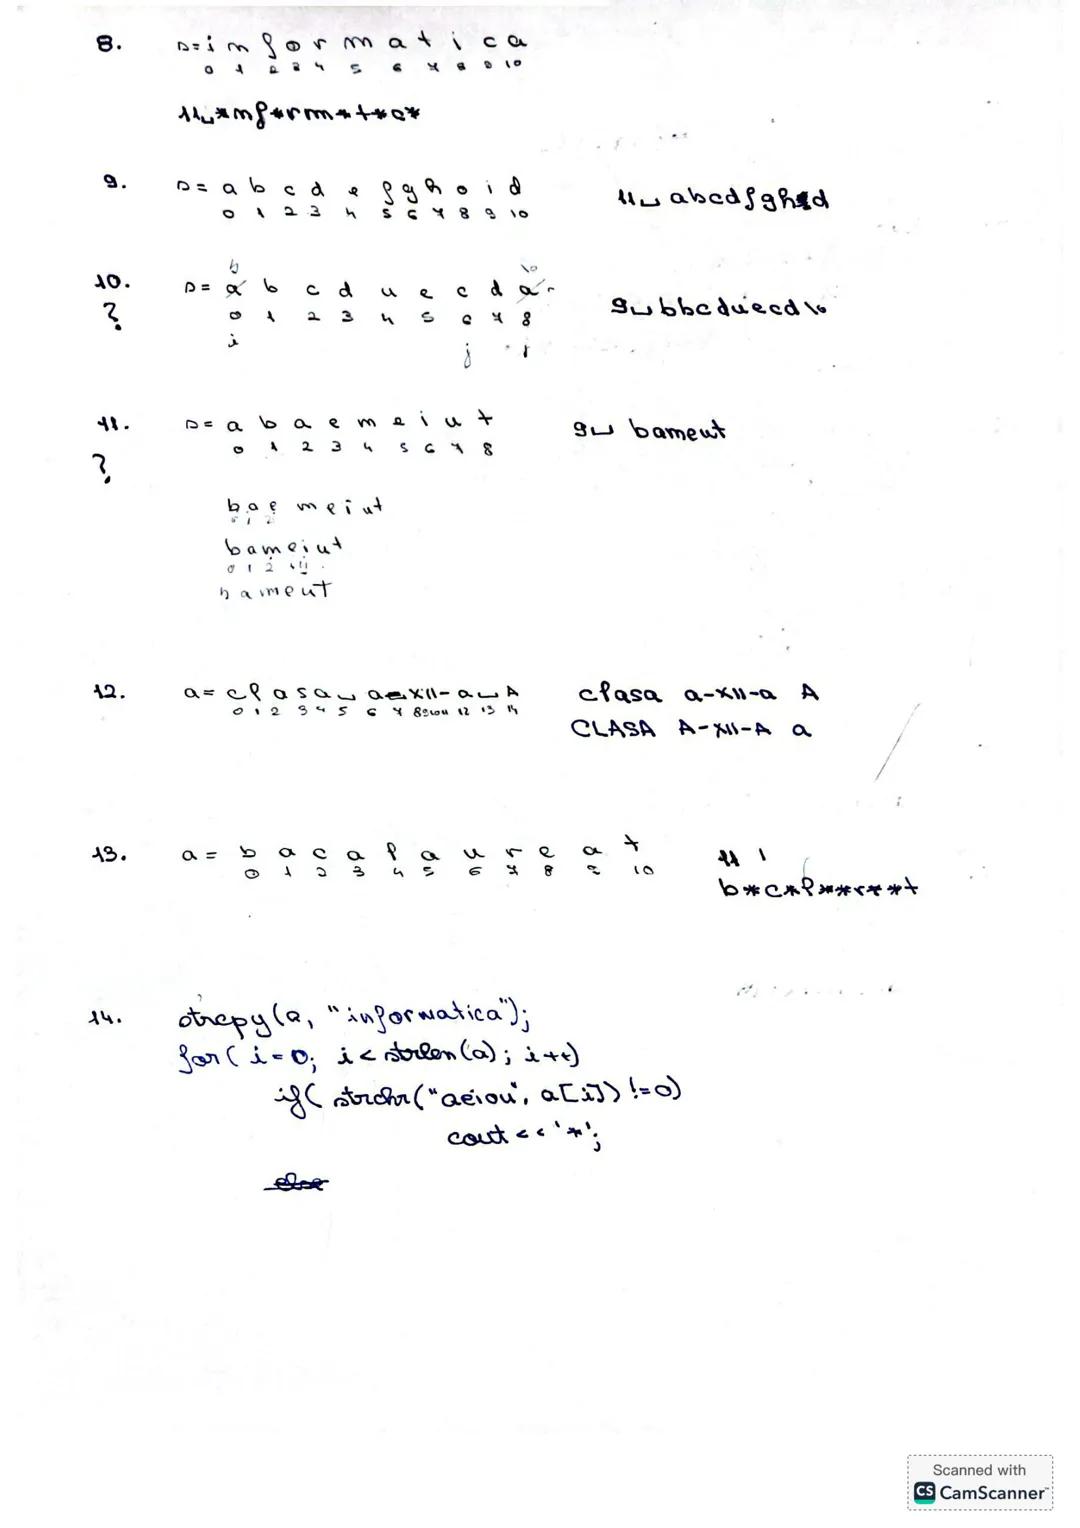 8. s= i n f o r m a t i c a
0 1 2 3 4 5 6 7 8 9 10
11␣*nf*rm*t*c*
9. s= a b c d e f g h o i d
0 1 2 3 4 5 6 7 8 9 10
11␣abcdfghd
10. s= a b c d u e c d a
b
? 0 1 2 3 4 5 6 7 8
i j j
9␣bbcduecd
11. s= a b a e m e i u t 9␣ bameut
? 0 1 2 3 4 5 6 7 8
bae meiut
0 1 2
bameiut
0 1 2
bameut
12. a= clasa␣a-XII-a␣A clasa a-XII-a A
0 1 2 3 4 5 6 7 8 9 10 11 12 13 14 CLASA A-XII-A a
13. a = b a c a l a u r e a t 11
0 1 2 3 4 5 6 7 8 9 10 b*c*l**r**t
14. strcpy(a, "informatica");
for( i=0; i< strlen(a); i++)
if( strchr("aeiou", a[i]) !=0)
cout<<'*';
else
Scanned with
CS CamScanner